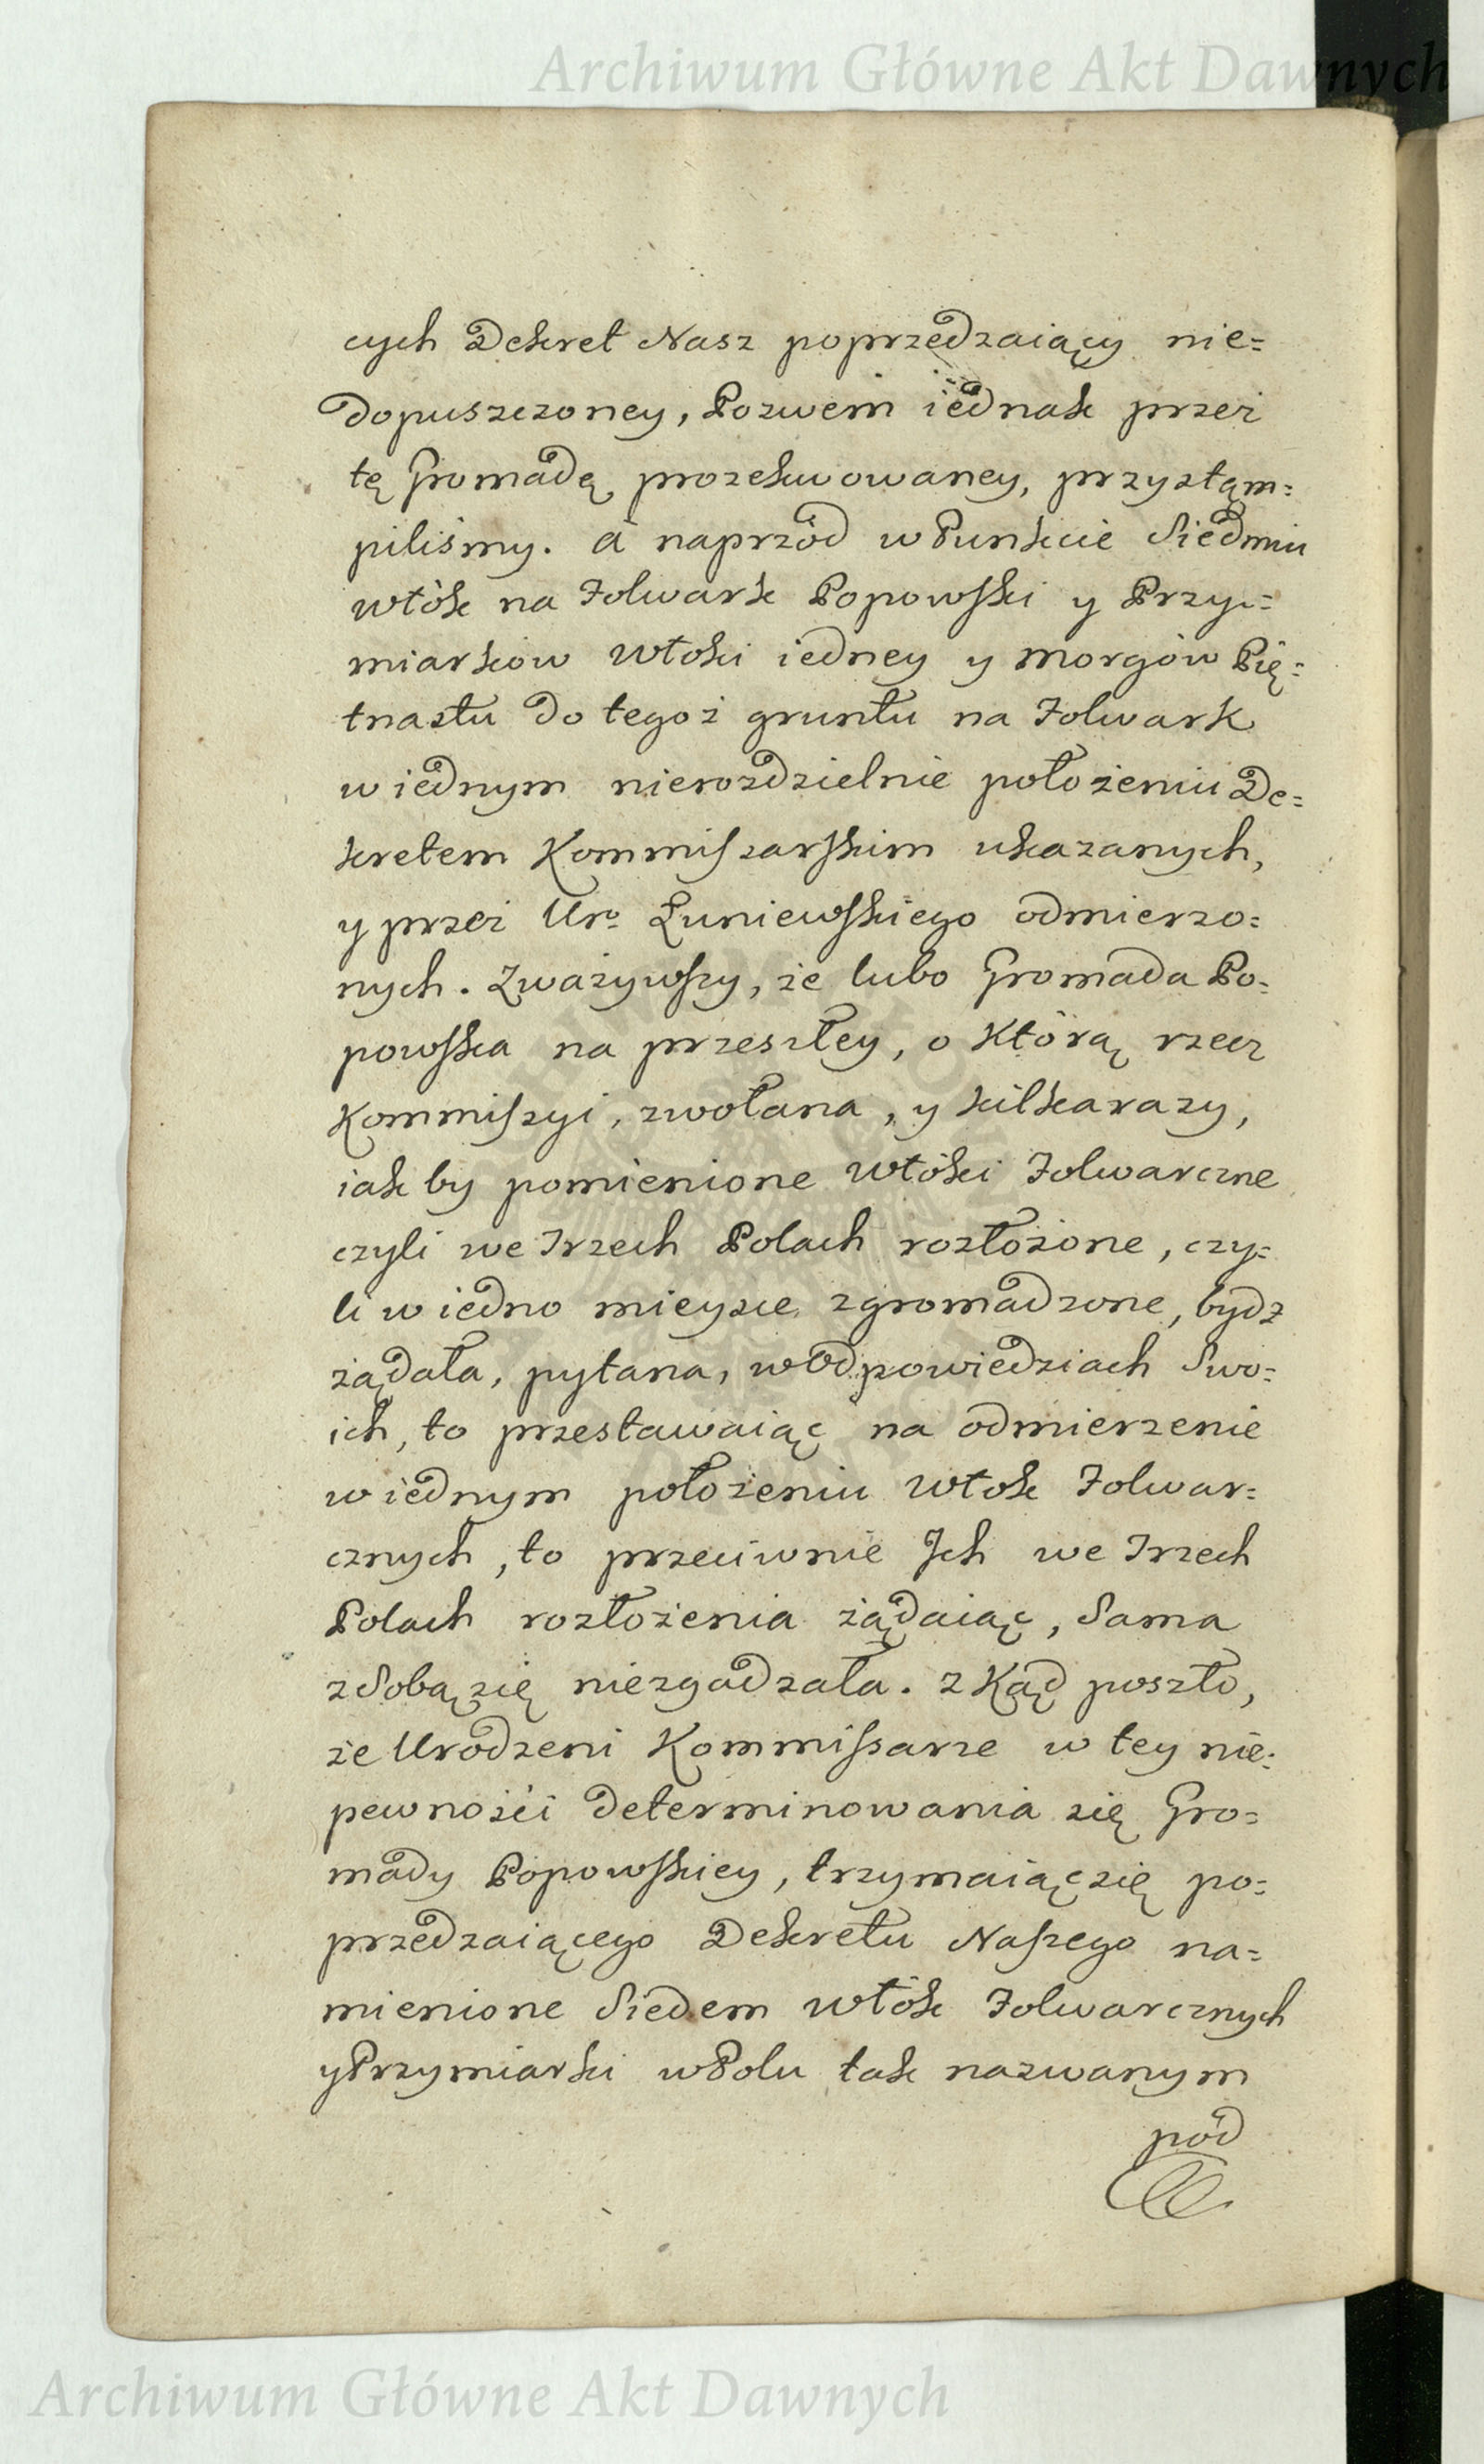 Archiwum Główne Akt Dawnych
cych Dekret Nasz poprzedzaiący nie=
dopuszczoney, Pozwem iednak przez
tę Gromadę prozekwowaney, przystąm=
piliśmy. a naprzód w Punkcie Siedmiu
włók na Folwark Popowski y Przy=
miarków Włoki iedney y Morgów Pię=
tnastu do tegoż gruntu na Folwark
w iednym nierozdzielnie położeniu De=
kretem Kommiszarskim ukazanych,
y przez Uro Łuniewskiego odmierzo=
nych. Zważywszy, że lubo Gromada Po=
powska na przeszłey, o Którą rzecz
Kommiszyi, zwołana, y kilkarazy,
iak by pomienione Włóki Folwarczne
czyli we Trzech Polach rozłożone, czy=
li w iedno mieysce zgromadzone, bydz
żądała, pytana, w Odpowiedziach Swo=
ich, to przestawaiąc na odmierzenie
w iednym położeniu Włok Folwar=
cznych, to przeciwnie Ich we Trzech
Polach rozłożenia żądaiąc, Sama
z Sobą się niezgadzała. z Kąd poszło,
że Urodzeni Kommissarze w tey nie=
pewności determinowania się Gro=
mady Popowskiey, trzymaiąc się po=
przedzaiącego Dekretu Naszego na=
mienione Siedem Włók Folwarcznych
y Przymiarki w Polu tak nazwanym
pód
Archiwum Główne Akt Dawnych